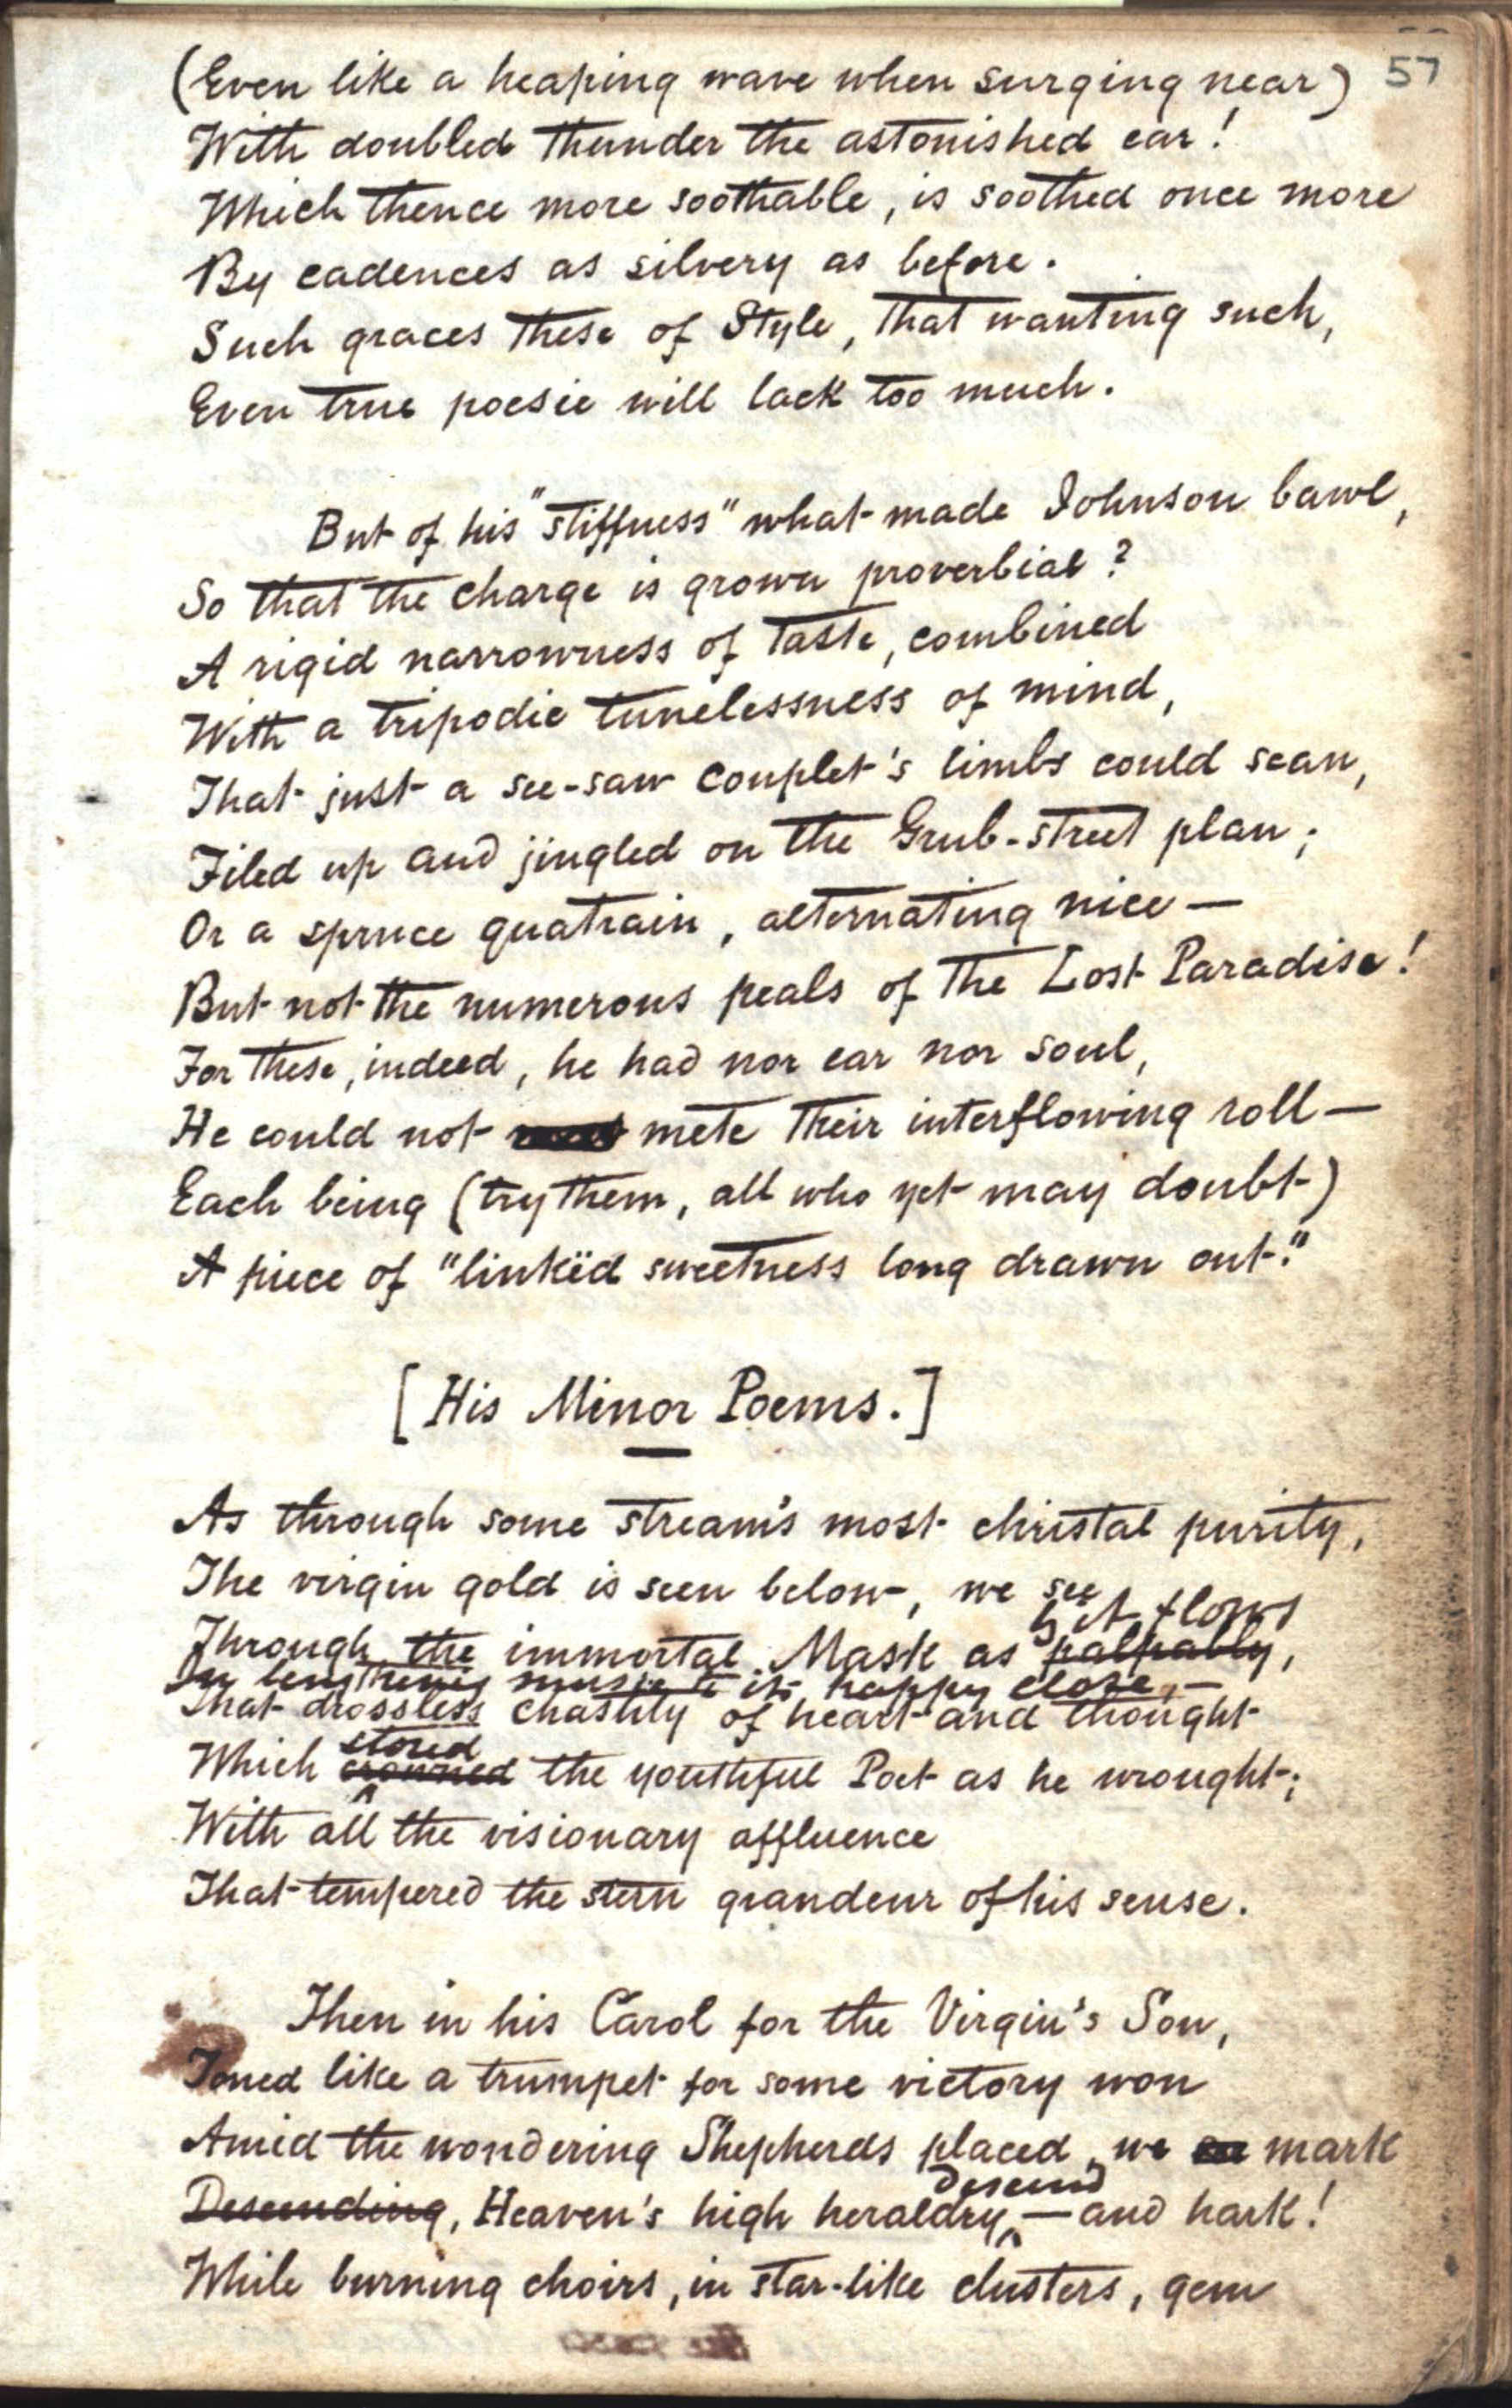 57
(Even like a heaping wave when surging near)
With doubled thunder the astonished ear!
Which thence more soothable, is soothed once more
By cadences as silvery as before.
Such graces these of Style, that wanting such,
Even true poesie will lack too much.
But of his "stiffness" what made Johnson bawl,
So that the charge is grown proverbial?
A rigid narrowness of taste, combined
With a tripodic tunelessness of mind,
That just a see-saw couplet's limbs could scan,
Filed up and jingled on the Grub-street plan;
Or a spruce quatrain, alternating nice—
But not the numerous peals of the Lost Paradise!
For these, indeed, he had nor ear nor soul,
He could not mete their interflowing roll—
Each being (try them, all who yet may doubt)
A piece of "linkëd sweetness long drawn out."
[His Minor Poems.]
As through some stream's most christal purity,
The virgin gold is seen below, we see
it flows
Through the immortal Mask as palpably,
In lengthening music to its happy close,—
That drossless chastity of heart and thought
stored
Which crowned the youthful Poet as he wrought;
With all the visionary affluence
That tempered the stern grandeur of his sense.
Then in his Carol for the Virgin's Son,
Toned like a trumpet for some victory won
Amid the wondering Shepherds placed, we mark
descend
Descending, Heaven's high heraldry,—and hark!
While burning choirs, in star-like clusters, gem